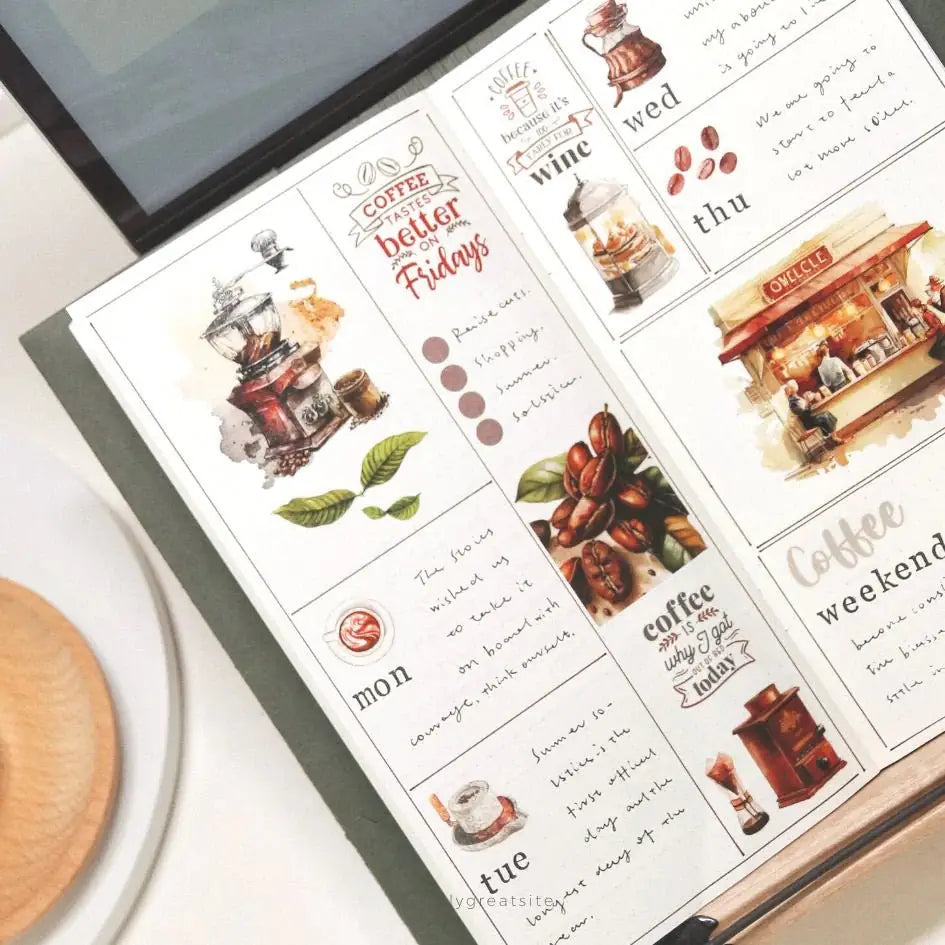 COFFEE
TASTES
better
ON
Fridays
Raise cuts.
Shopping.
Summer
Solstice.
The Stoics
wished us
to take it
on board with
courage, think ourselves.
mon
Summer so-
lstice is the
first official
day and the
longest day of the
year.
tue
coffee
IS
why I got
OUT OF BED
today
COFFEE
because it's
TOO
EARLY FOR
wine
is going to
wed
We are going to
start to feel a
lot more
thu
Coffee
weekend
become
still
lygreatsite